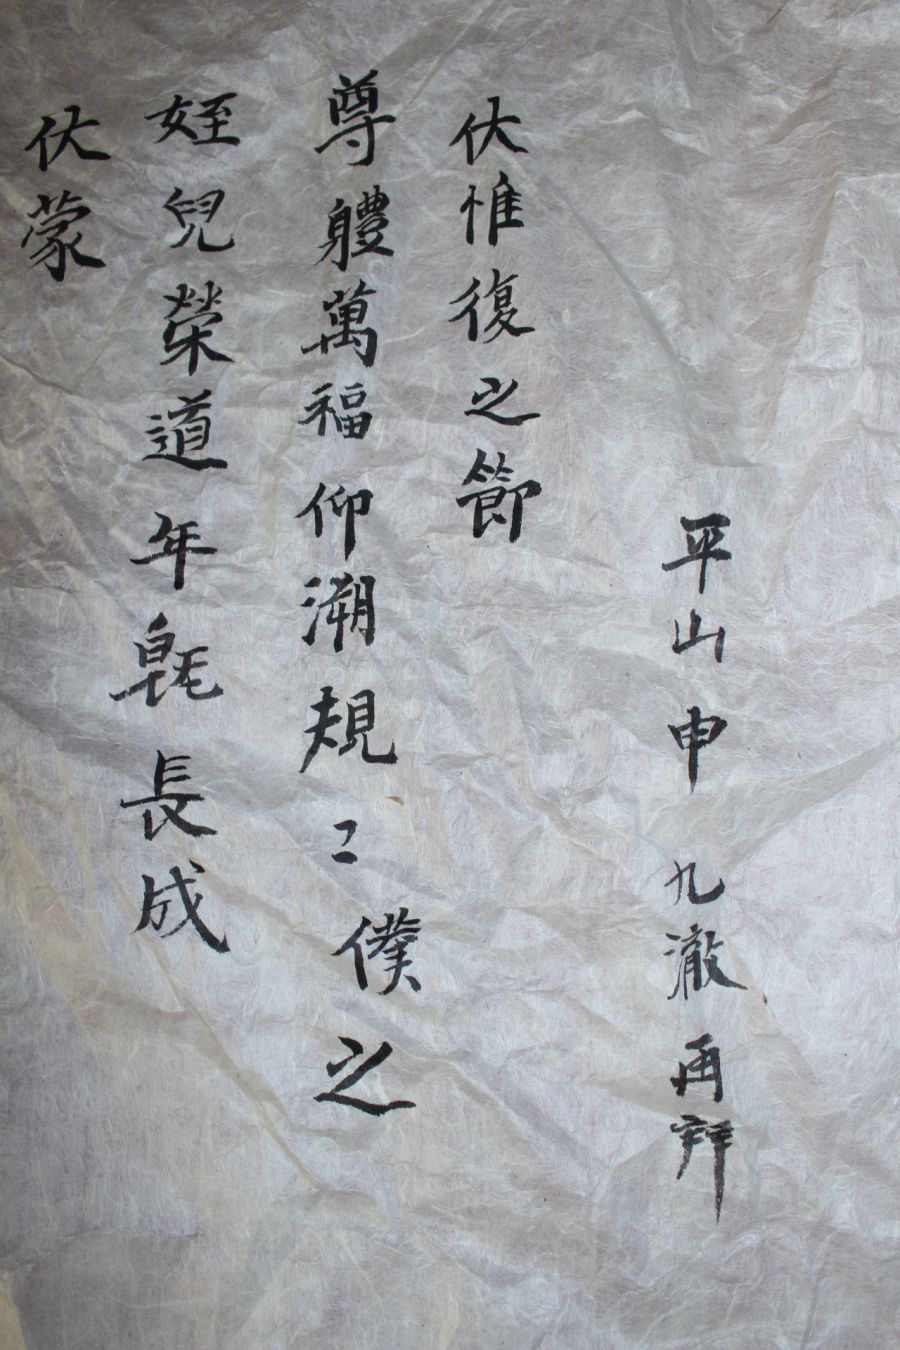 平山申九澈再拜
伏惟復之節
尊體萬福仰溯規〻僕之
姪兒榮道年旣長成
伏蒙